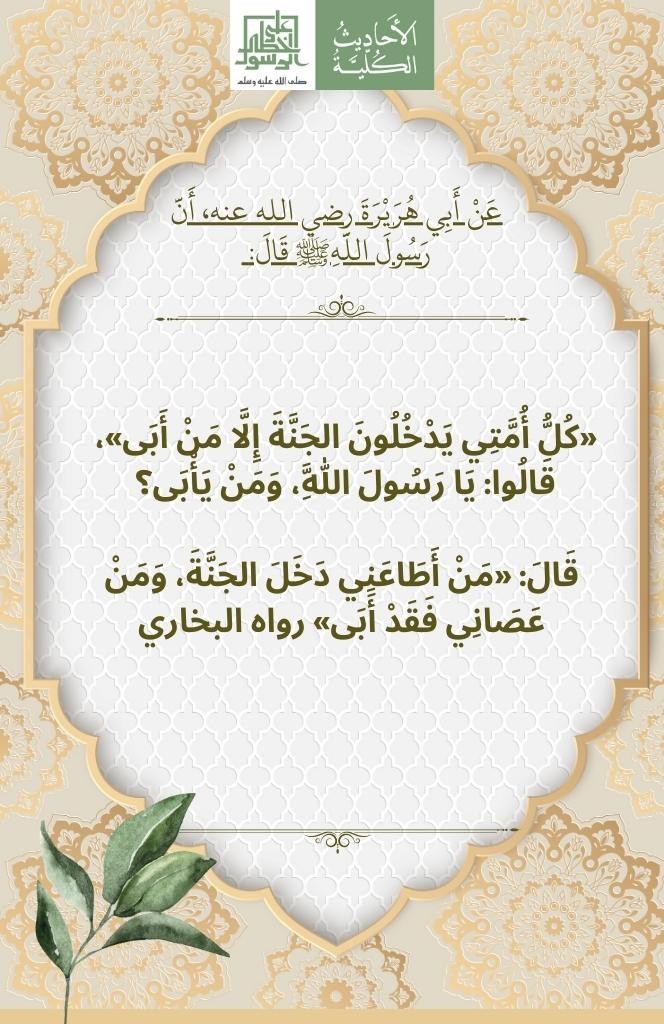 الأَحَادِيثُ
الكُلِّيَّةُ
على
خطى
الرسول
صلى الله عليه وسلم
عَنْ أَبِي هُرَيْرَةَ رضي الله عنه، أَنَّ
رَسُولَ اللَّهِ ﷺ قَالَ:
«كُلُّ أُمَّتِي يَدْخُلُونَ الجَنَّةَ إِلَّا مَنْ أَبَى»،
قَالُوا: يَا رَسُولَ اللَّهِ، وَمَنْ يَأْبَى؟
قَالَ: «مَنْ أَطَاعَنِي دَخَلَ الجَنَّةَ، وَمَنْ
عَصَانِي فَقَدْ أَبَى» رواه البخاري